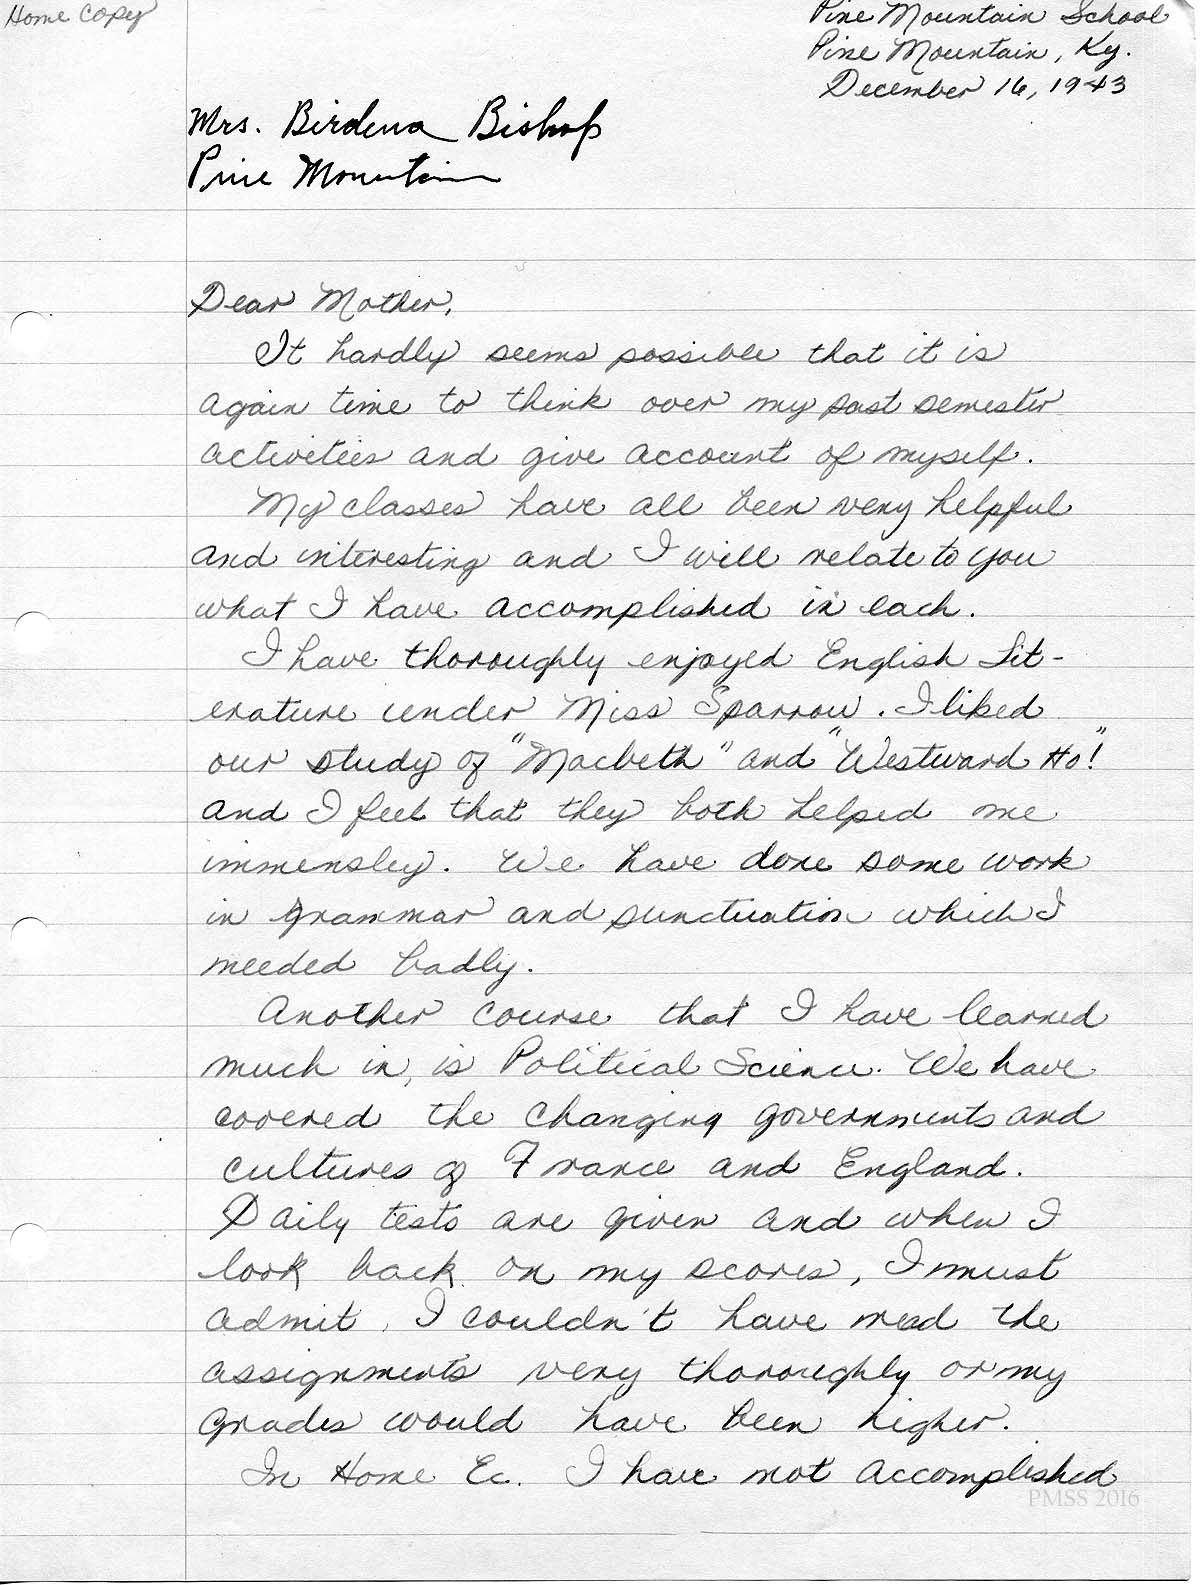 Home Copy
Pine Mountain School
Pine Mountain, Ky.
December 16, 1943
Mrs. Birdena Bishop
Pine Mountain
Dear Mother,
It hardly seems possible that it is
again time to think over my past semester
activities and give account of myself.
My classes have all been very helpful
and interesting and I will relate to you
what I have accomplished in each.
I have thoroughly enjoyed English Lit-
erature under Miss Sparrow. I liked
our study of "Macbeth" and "Westward Ho!"
and I feel that they both helped me
immensley. We have done some work
in grammar and punctuation which I
needed badly.
Another course that I have learned
much in, is Political Science. We have
covered the changing governments and
cultures of France and England.
Daily tests are given and when I
look back on my scores, I must
admit, I couldn't have read the
assignments very thoroughly or my
grades would have been higher.
In Home Ec. I have not accomplished
PMSS 2016